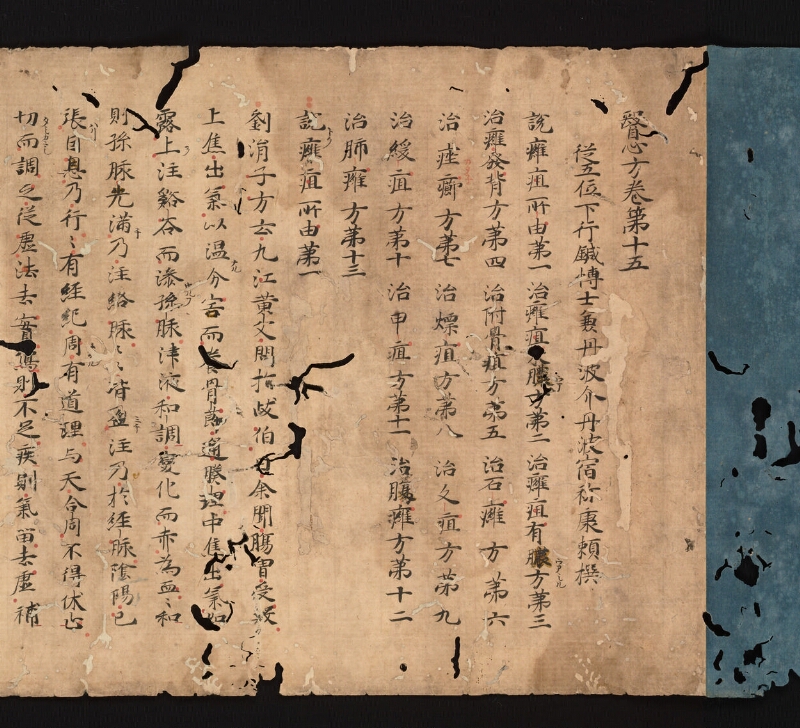 醫心方卷第十五
從五位下行鍼博士兼丹波介丹波宿祢康頼撰
說癰疽所由第一 治癰疽未膿方第二 治癰疽有膿方第三
治癰發背方第四 治附骨疽方第五 治石癰方第六
治痤癤方第七 治熛疽方第八 治久疽方第九
治緩疽方第十 治甲疽方第十一 治腸癰方第十二
治肺癰方第十三
說癰疽所由第一
劉涓子方云九江黄父問於岐伯曰余聞膓胃受穀
上焦出氣以温分害而養骨莭通腠理中焦出氣如
露上注谿谷而滲孫脉津液和調變化而赤為血〻和
則孫脉先滿乃注絡脉〻皆盈注乃於經脉陰陽已
張自息乃行〻有經紀周有道理与天合周不得休止
切而調之從虛法去實寫則不足疾則氣留去虛補